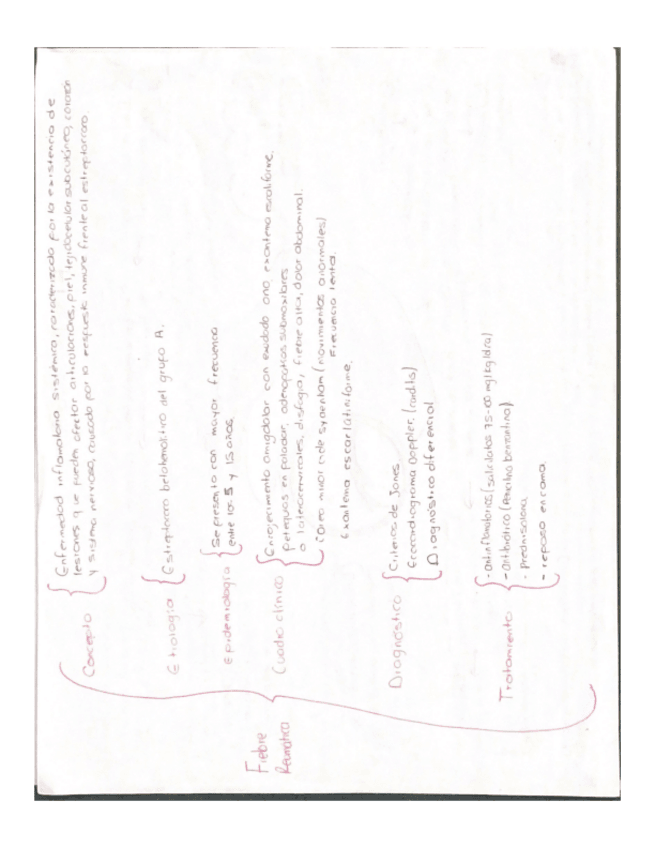 Fiebre
Reumatica
Concepto
Enfermedad inflamatoria sistémica, caracterizada por la existencia de
lesiones que pueden afectar articulaciones, piel, tejido celular subcutáneo, corazón
y sistema nervioso, causada por la respuesta inmune frente al estreptococo
Etiologia
Estreptococo betahemolitivo del grupo A.
Epidemiología
Se presenta con mayor frecuencia
entre los 5 y 15 años
Cuadro clínico
Enrojecimiento amigdalar con exudado
Petequias en paladar, adenopatías submaxilares
o laterocervicales, disfagia, fiebre alta, dolor abdominal.
Corea minor de sydenham (movimientos anormales)
Frecuencia lenta.
Exantema escarlatiniforme.
Diagnostico
Criterios de Jones
Ecocardiograma Doppler. (carditis)
Diagnostico diferencial
Tratamiento
- antiinflamatorios (salicilatos mg/kg/dia)
- antibiotico (Penicilina benzantina)
- Prednisolona
- reposo en cama